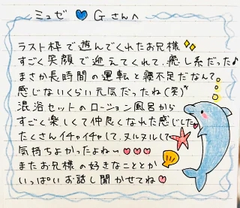 ミュゼ♥Gさんへ
ラスト枠で遊んでくれたお兄様✨
すごく笑顔で迎えてくれて、癒し系だった♪
まさか長時間の運転と寝不足だなんて
感じないくらい元気だったね(笑)
混浴セットのローション風呂から
すごく楽しくて仲良くなれた感じした
たくさんイチャイチャして、ヌルヌルして
気持ちよかったよね〜♥♥♥
またお兄様の好きなこととか
いっぱいお話し聞かせてね♥